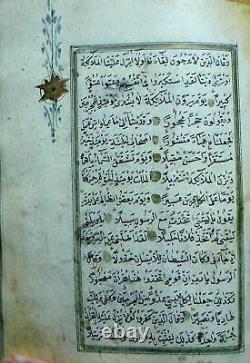 وقال الذين لا يرجون لقاءنا لولا انزل علينا الملائكة
او نرى ربنا لقد استكبروا في انفسهم وعتوا عتوا
كبيرا يوم يرون الملائكة لا بشرى يومئذ للمجرمين
ويقولون حجرا محجورا وقدمنا الى ما عملوا من
عمل فجعلناه هباء منثورا اصحاب الجنة يومئذ خير
مستقرا واحسن مقيلا ويوم تشقق السماء بالغمام
ونزل الملائكة تنزيلا الملك يومئذ الحق للرحمن وكان
يوما على الكافرين عسيرا ويوم يعض الظالم على يديه
يقول يا ليتني اتخذت مع الرسول سبيلا يا ويلتى
ليتني لم اتخذ فلانا خليلا لقد اضلني عن الذكر
بعد اذ جاءني وكان الشيطان للانسان خذولا وقال
الرسول يا رب ان قومي اتخذوا هذا القران مهجورا
وكذلك جعلنا لكل نبي عدوا من المجرمين وكفى بربك
هاديا ونصيرا وقال الذين كفروا لولا نزل عليه
القران جملة واحدة كذلك لنثبت به